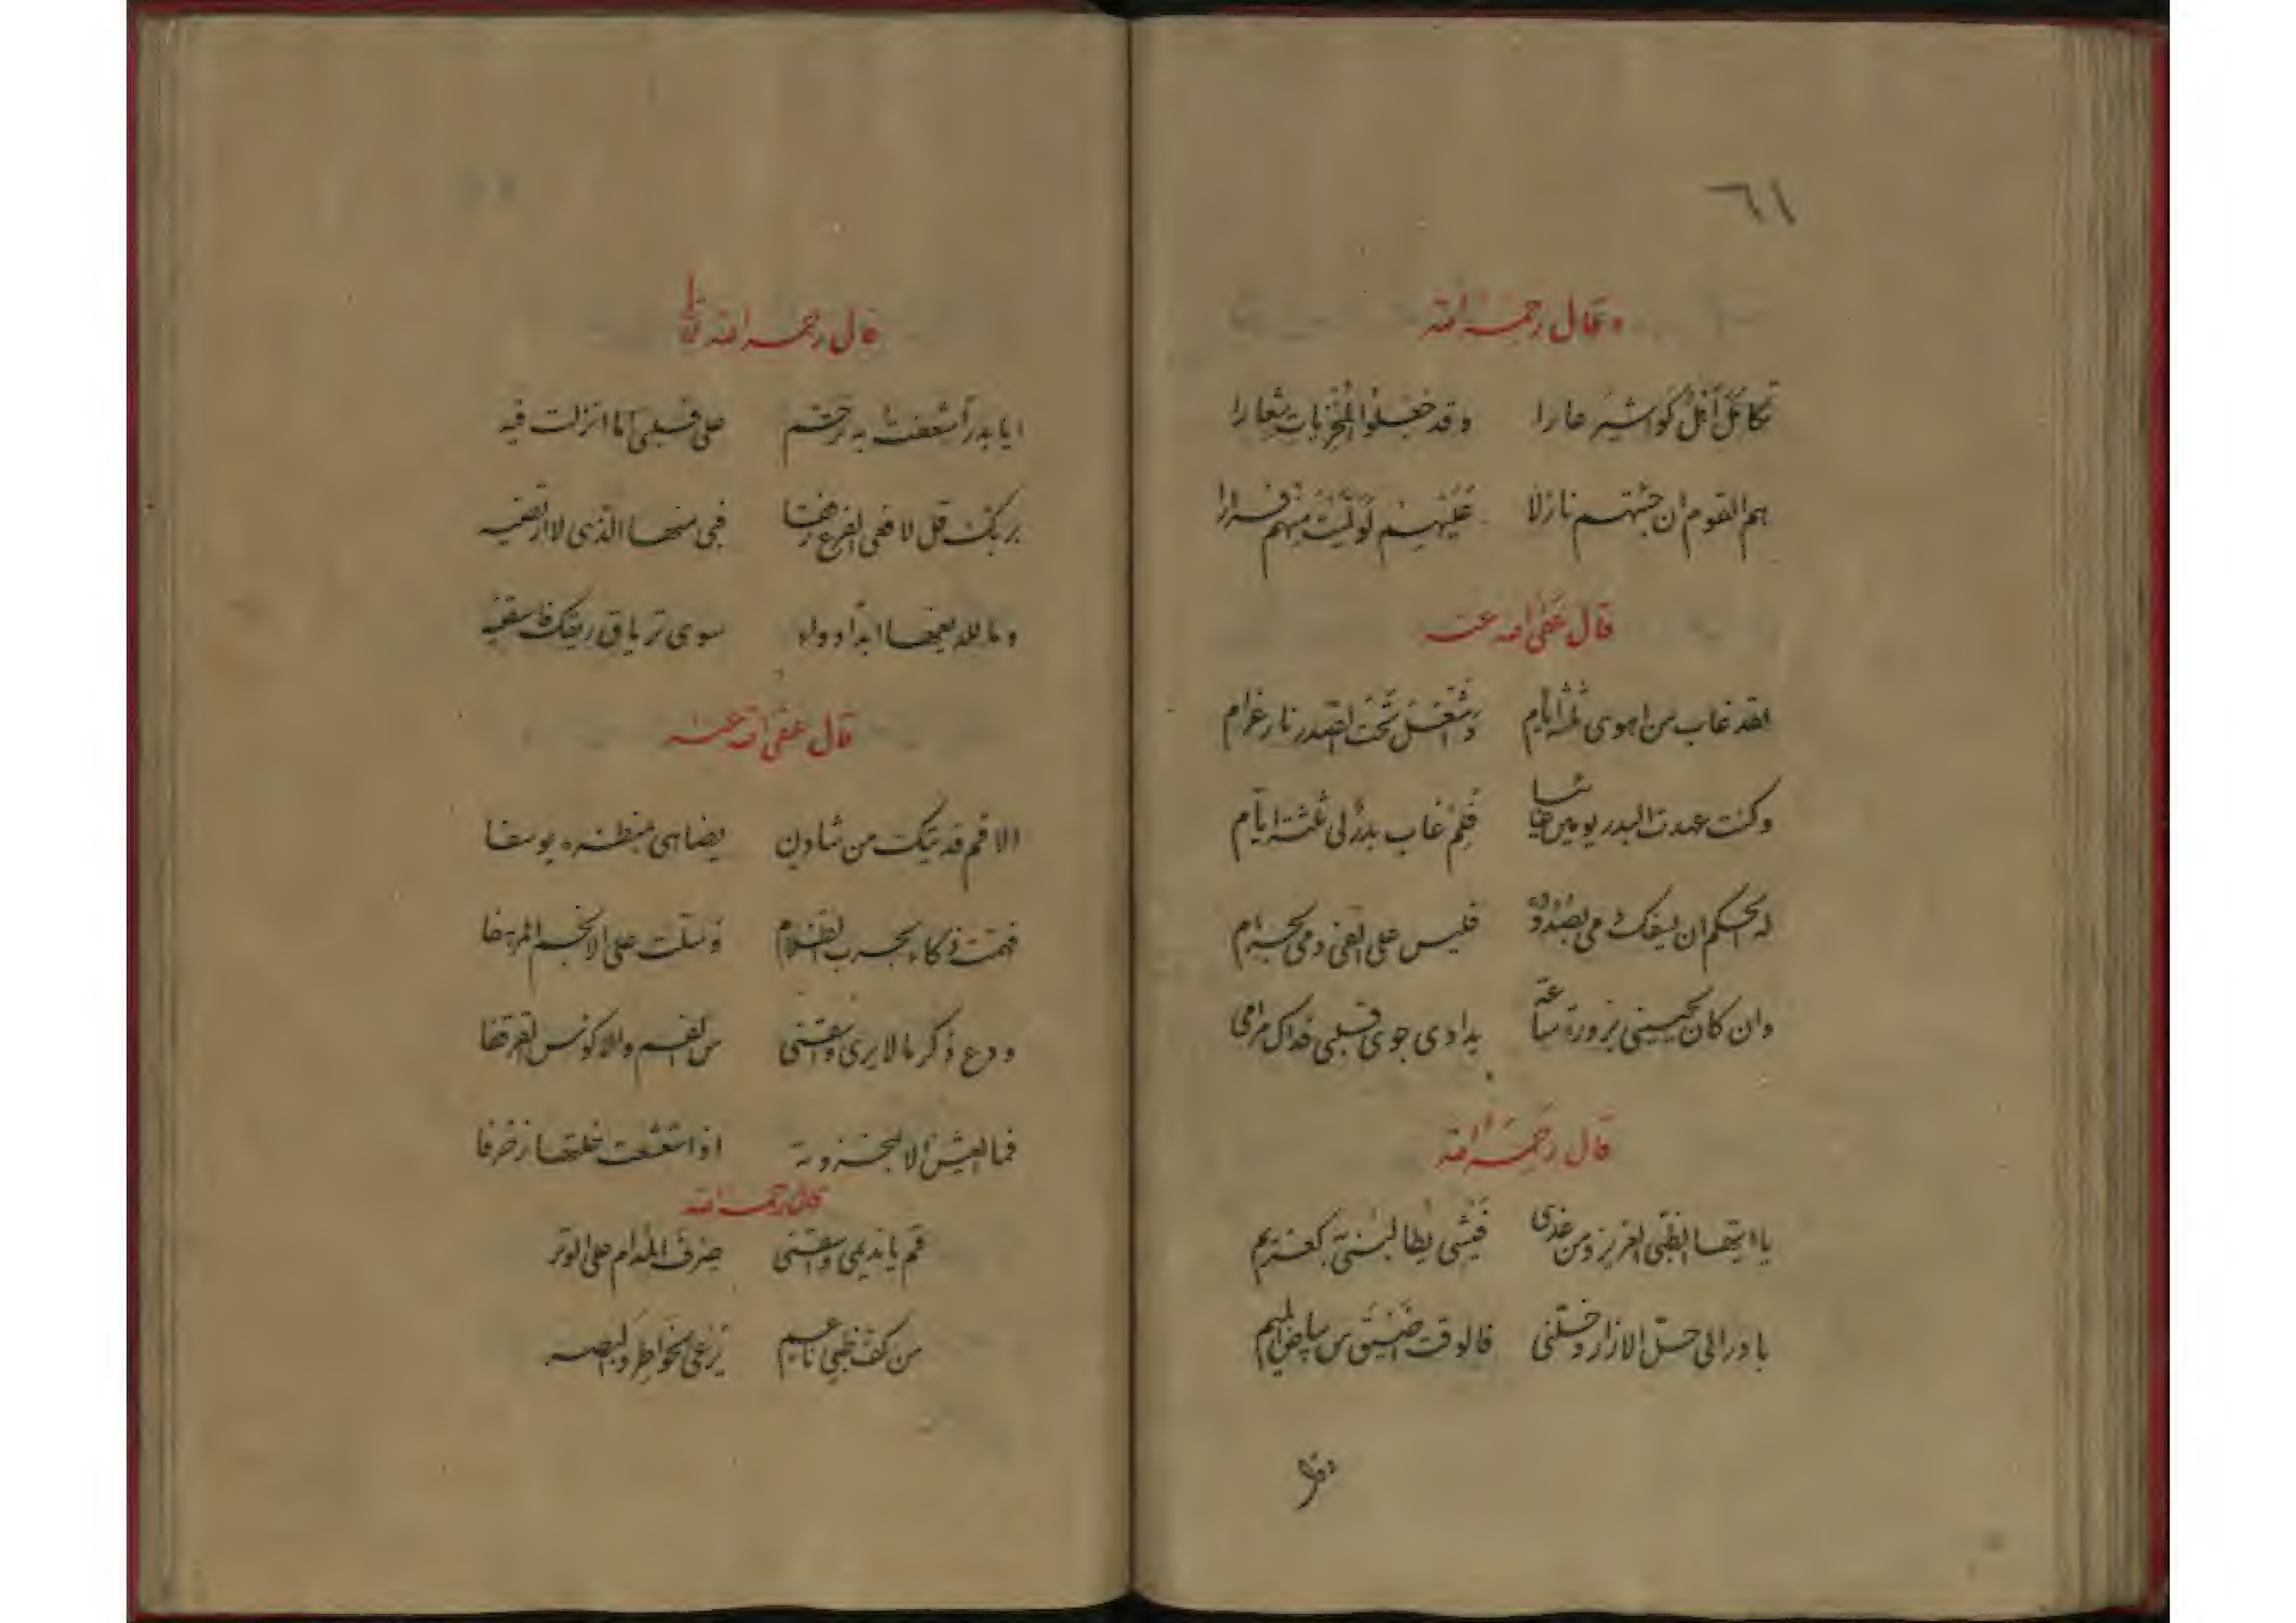 ٦١
وقال رحمه الله
تكامل أهل كواشير عارا وقد جعلوا المخزيات شعارا
هم القوم ان جئتهم نازلا عليهم لوليت منهم فرارا
قال عفى الله عنه
لقد غاب من اهوى ثلثة ايام وشعل تحت الصدر نار غرام
وكنت عهدت البدر يومين غائبا فلم غاب بدر لى ثلثة ايام
له الحكم ان يسفك دمى بصدوده فليس على الفى دمى بحرام
وان كان يحيينى بزورة ساعة يداوى جوى قلبى فذاك مرامى
قال رحمه الله
يا ايها الظبى العزيز ومن غدى يطالبنى كغريم
بادر الى حل الازار وخلنى فالوقت ضيق من
قال رحمه الله
ايا بدرا شغفت به ترحم على قلبى اما انزلت فيه
بربك قل لافعى الفرع رفقا فبى منها الذى لا ارتضيه
وما للدغها ابدا دواء سوى ترياق ريقك فاسقنيه
قال عفى الله عنه
الا قم فديتك من شادن يضاهى بمنظره يوسفا
فهمت ذكاء بحرب الظلام وسلت على الانجم المرهفا
ودع ذكر ما لا يرى واسقنى من الفم والاكوس القرقفا
فما العيش الا
قال رحمه الله
قم يا نديمى واسقنى صرف المدام على الوتر
من كف ظبى ناعم يرعى الخواطر والبصر